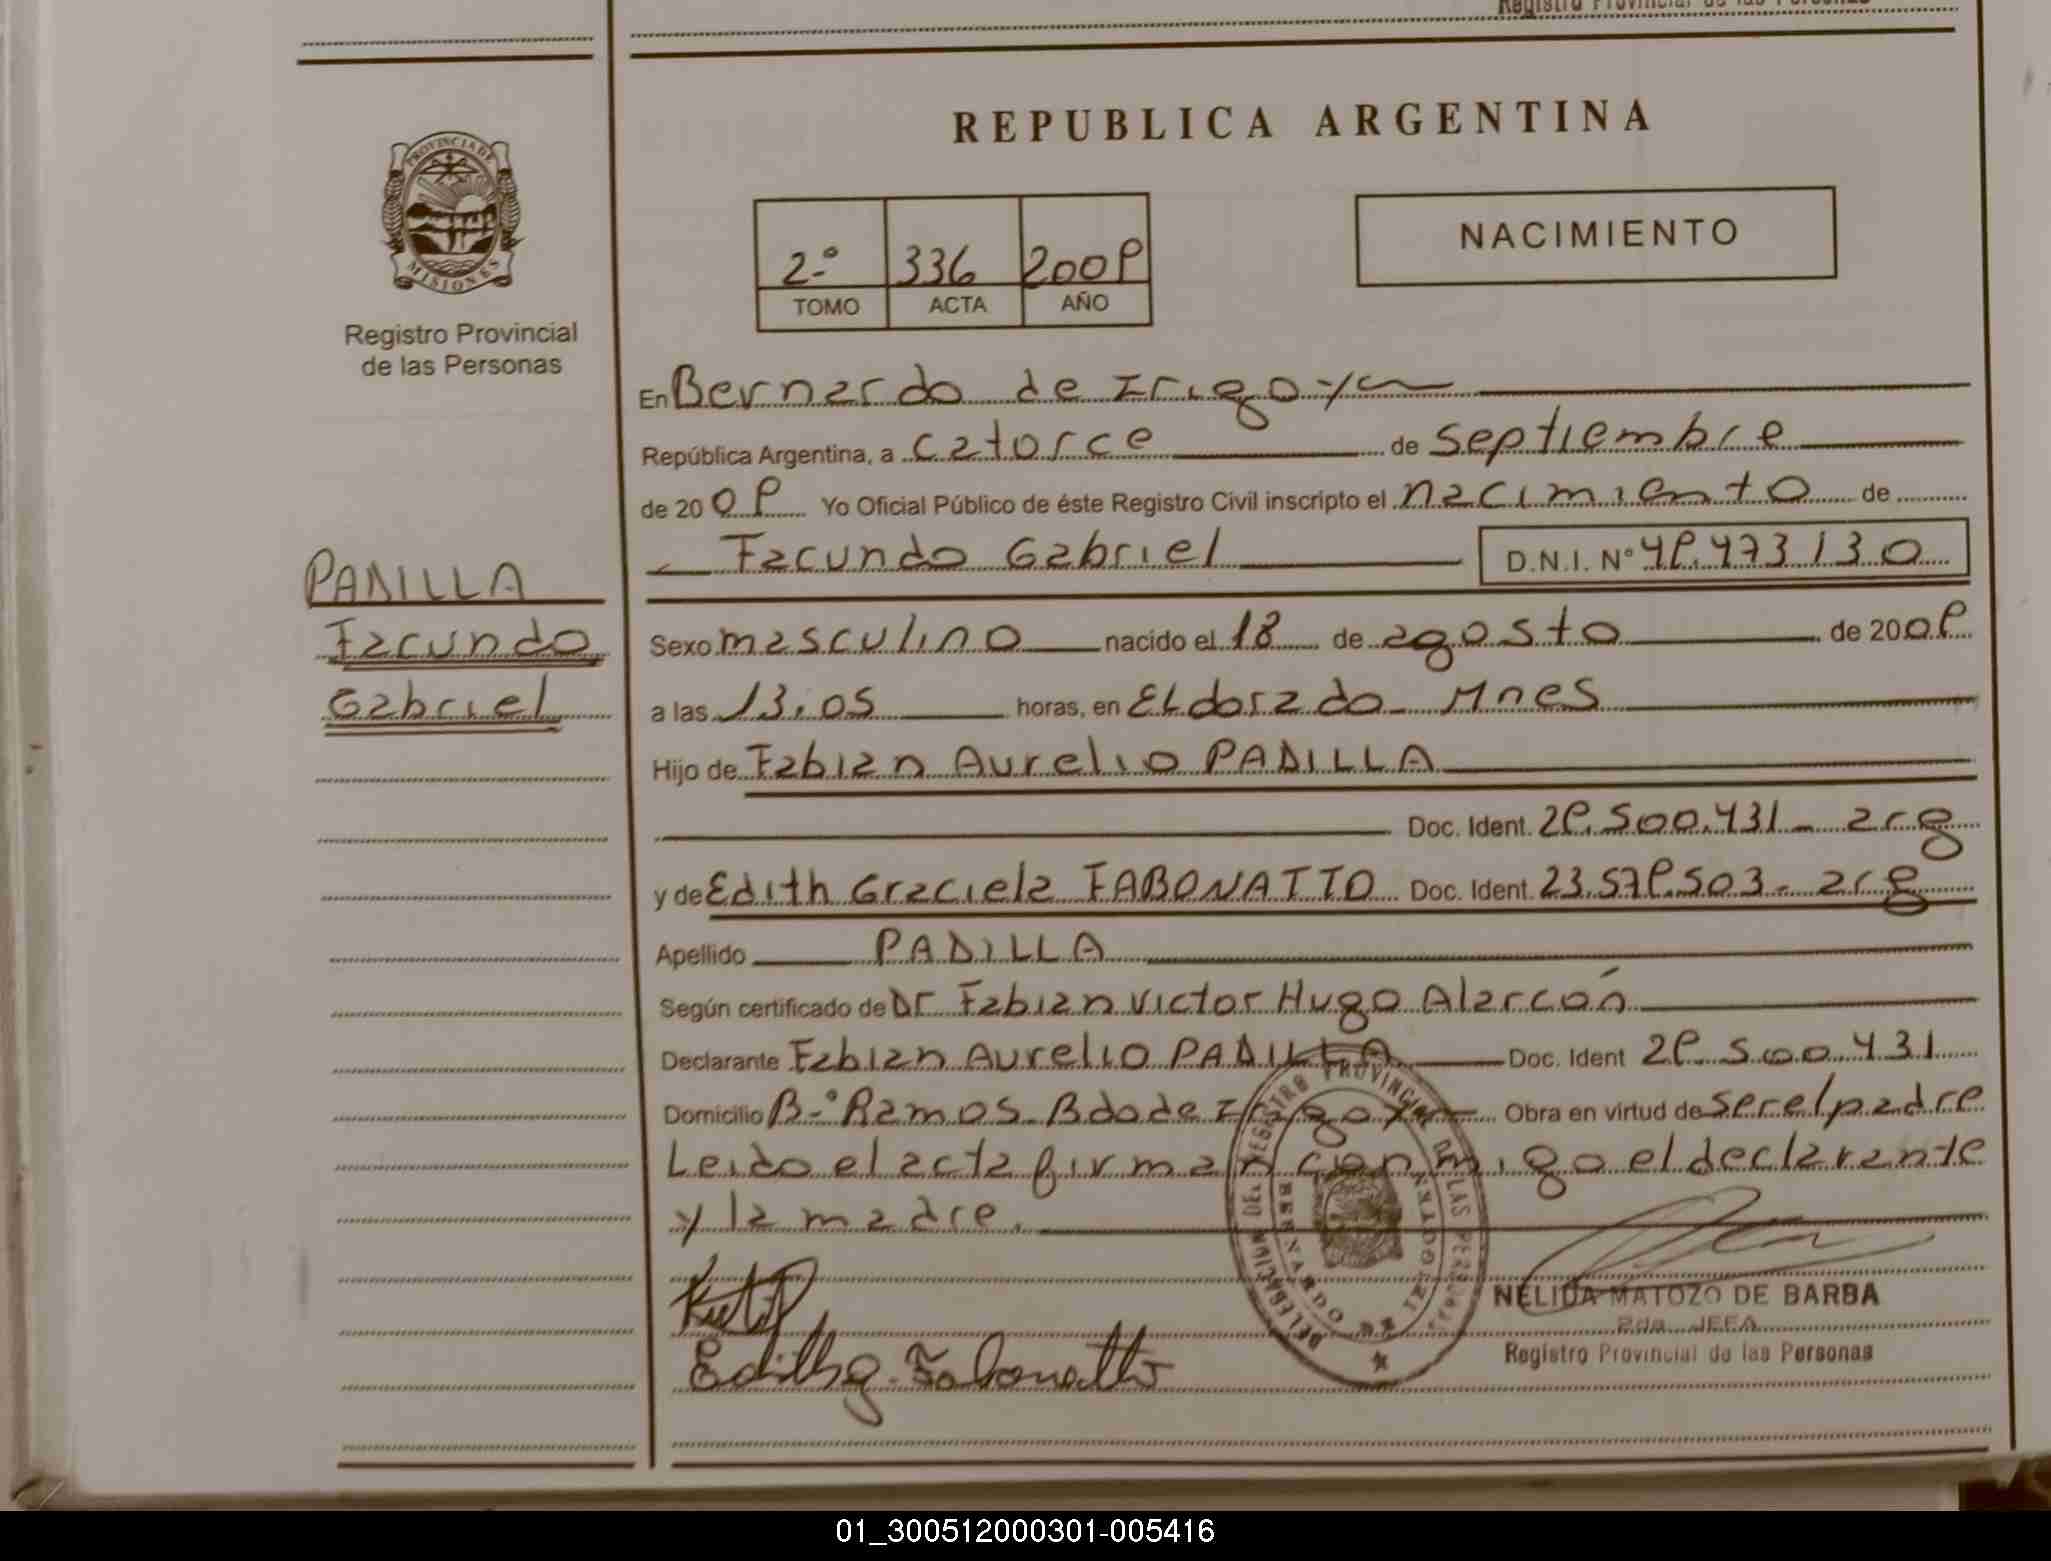 Registro Provincial de las Personas
REPUBLICA ARGENTINA
PROVINCIA DE
MISIONES
Registro Provincial
de las Personas
2º 336 2009
TOMO ACTA AÑO
NACIMIENTO
En Bernardo de Irigoyen
República Argentina, a catorce de septiembre
de 2009 Yo Oficial Público de éste Registro Civil inscripto el nacimiento de
Facundo Gabriel D.N.I. Nº 49.473130
PADILLA
Facundo
Gabriel
Sexo masculino nacido el 18 de agosto de 2009
a las 13.05 horas, en Eldorado Mnes
Hijo de Fabian Aurelio PADILLA
Doc. Ident. 29.500.431 - arg
y de Edith Graciela FABONATTO Doc. Ident. 23.579.503 - arg
Apellido PADILLA
Según certificado de Dr Fabian Victor Hugo Alarcón
Declarante Fabian Aurelio PADILLA Doc. Ident 29.500.431
Domicilio B-º Ramos. Bdo de Irigoyen Obra en virtud de ser el padre
Leido el acta firman conmigo el declarante
y la madre.
DELEGACION DEL REGISTRO PROVINCIAL DE LAS PERSONAS
BERNARDO DE IRIGOYEN
Edith g. Fabonatto
NELIDA MATOZO DE BARBA
2da. JEFA
Registro Provincial de las Personas
01_300512000301-005416